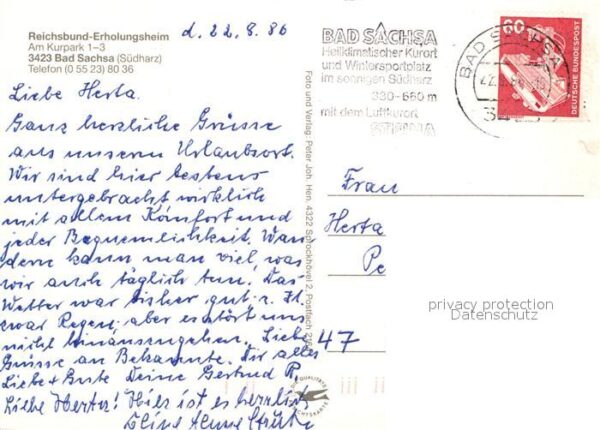 Reichsbund-Erholungsheim
Am Kurpark 1–3
3423 Bad Sachsa (Südharz)
Telefon (0 55 23) 80 36
d. 22.8.86
Liebe Herta.
Ganz herzliche Grüsse
aus unserem Urlaubsort.
Wir sind hier bestens
untergebracht wirklich
mit allem Komfort und
jeder Bequemlichkeit. Wan
dern kann man viel, was
wir auch täglich tun. Das
Wetter war bisher gut. z. Zt.
zwar Regen, aber es stört uns
nicht hinauszugehen. Liebe
Grüsse an Bekannte. Dir alles
Liebe + Gute Deine Gertrud P.
Liebe Herta! Hier ist es herrlich
Foto und Verlag: Peter Joh. Hen. 4322 Sprockhövel 2, Postfach
BAD SACHSA
Heilklimatischer Kurort
und Wintersportplatz
im sonnigen Südharz
330-660 m
mit dem Luftkurort
STEINA
BAD SACHSA
60
DEUTSCHE BUNDESPOST
Frau
Herta
Pe
47
privacy protection
Datenschutz